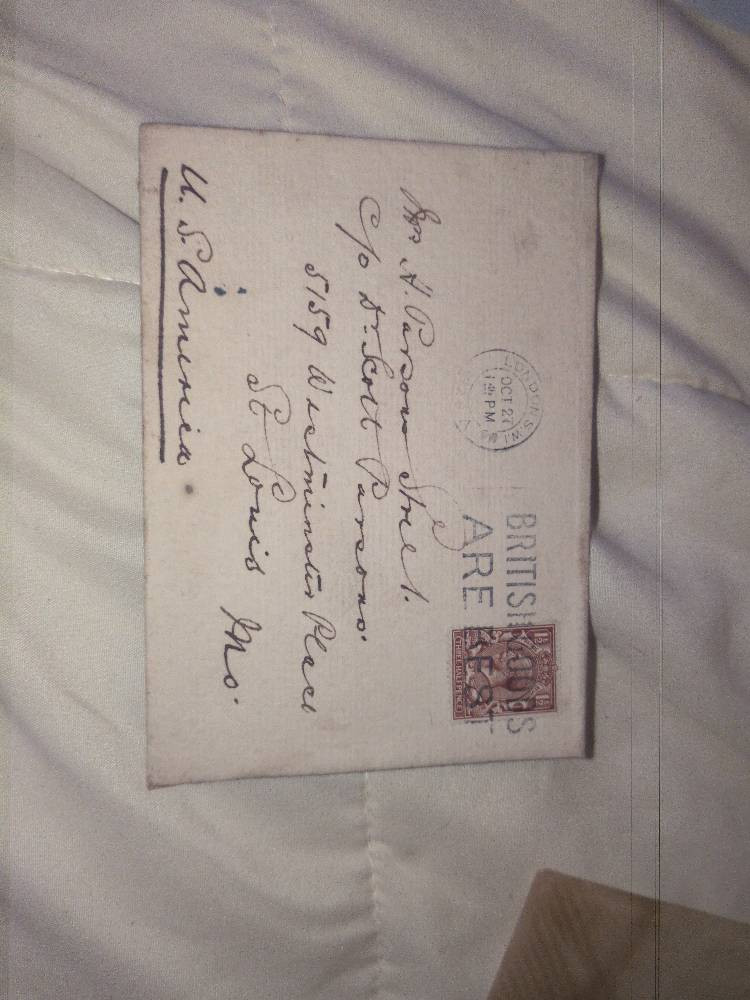 LONDON. S.W.1
OCT 27
PM
BRITISH GOODS
ARE BEST
1½ 1½
THREE HALFPENCE
Mrs H. Parsons Street.
c/o Dr. Scott Parsons.
5159 Westminster Place
St Louis Mo.
U. S. America.